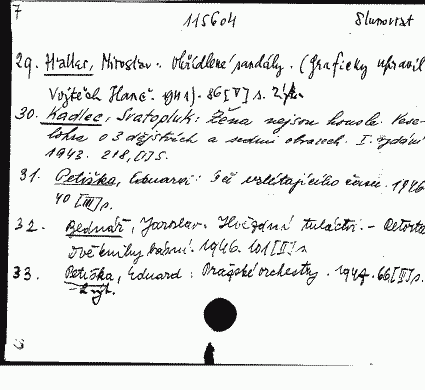 7 115604 Slunovrat
29. Haller, Miroslav. Okřídlené sandály. (Graficky upravil
Vojtěch Hanč. 1941). 86[V] s.
30. Kadlec, Svatopluk: Žena nejsou housle. Vese-
lohra o 3 dějstvích a sedmi obrazech. I. vydání
1943. 218,[I] s.
31. Petiška, Eduard: vzlétajícího 1946
40 [III] s.
32. Bednář, Jaroslav. Hvězdní tuláctví. - Retorta
Dvě knihy básní. 1946. 101 [II] s.
33. Petiška, Eduard: Pražské orchestry. 1947. 66[II] s.